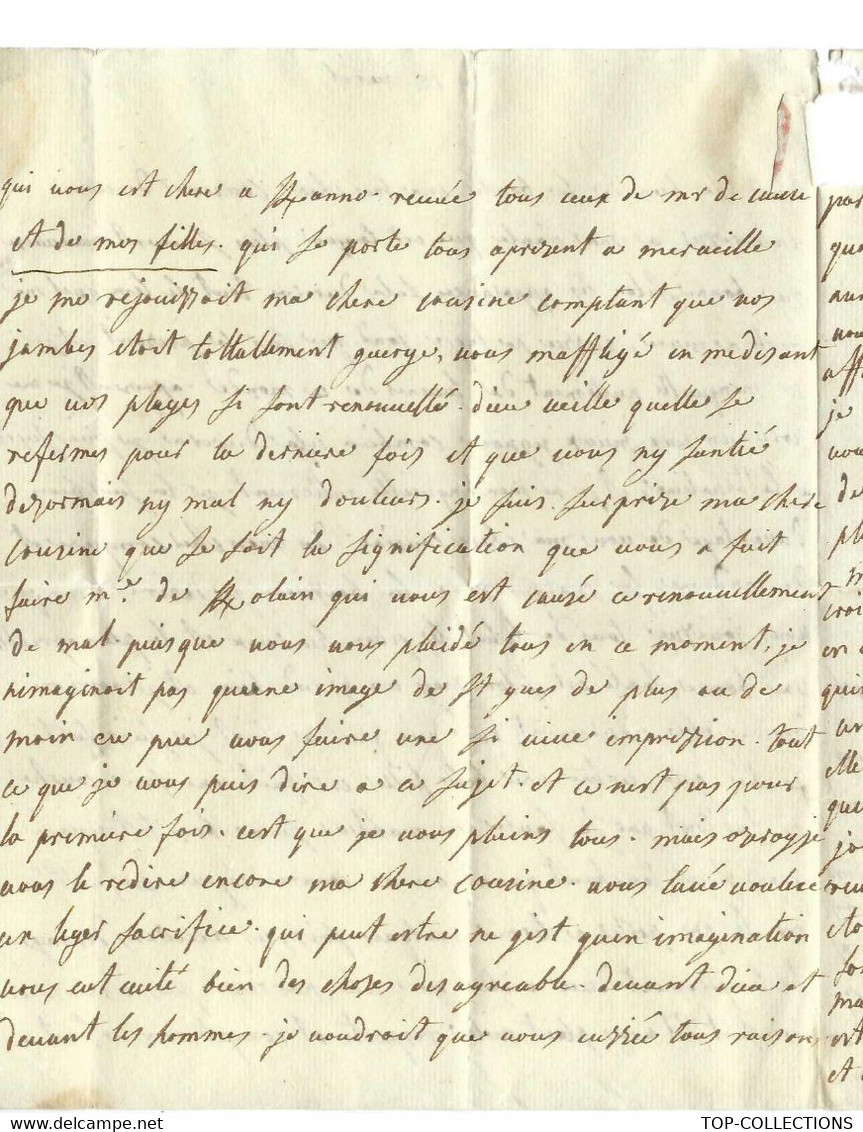 qui vous est chere a hanno. recevée tous ceux de mr de
et de mes filles. qui se porte tous aprezent a merveille
je me rejouizzoit ma chere cousine comptant que vos
jambes etoit tottallement guerye, vous maffligé en me disant
que vos playes si sont renouvellé. dieu veille quelle se
refermes pour la derniere fois et que vous ny santié
dezormais ny mal ny douleurs. je suis surprize ma chere
cousine que se soit la signification que vous a fait
faire me. de qui vous est causé ce renouvellement
de mal puisque vous vous pleidé tous en ce moment, je
nimaginoit pas quene image de st yves de plus ou de
moin eu pue vous faire une si vive imprezzion. tout
ce que je vous puis dire a ce sujet. et ce nest pas pour
la premiere fois. cest que je vous pleins tous. mais ozrayje
vous le redire encore ma chere cousine. vous lavé voulue
un leger sacrifice. qui peut estre ne gist quen imagination
vous eut evité bien des chozes desagreable. devant dieu et
devant les hommes. je voudroit que vous euzzié tous raisons
par
que
aus
vou
affl
je
vou
de
pl
m
croi
en
qui
un
elle
que
ja
eto
ma
et
TOP-COLLECTIONS